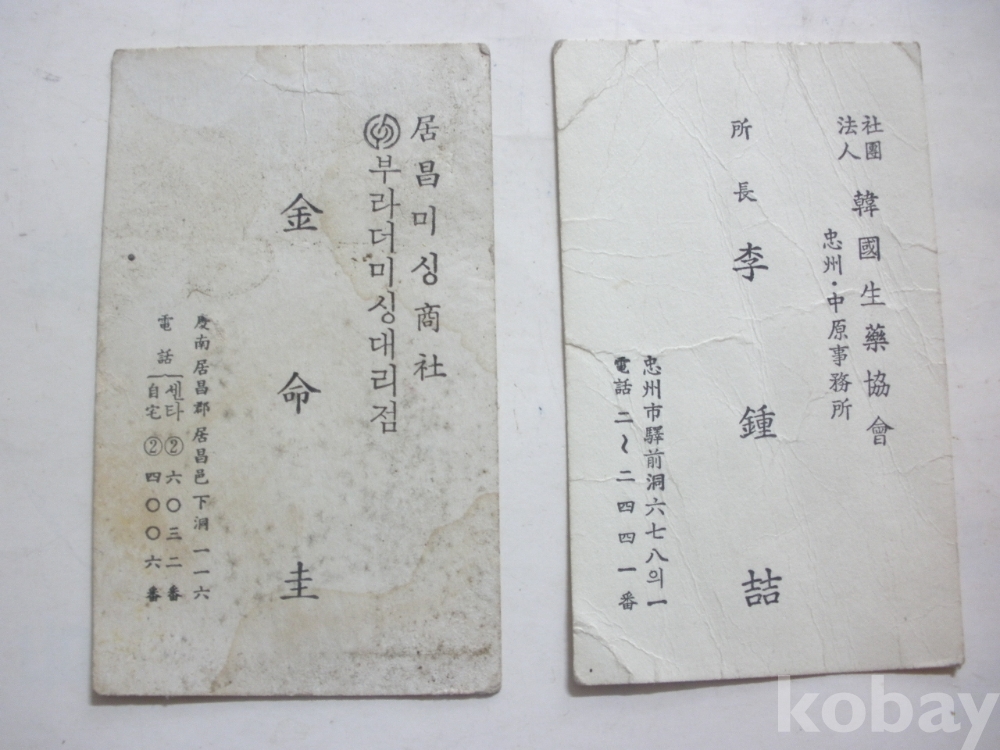 居昌미싱商社
부라더미싱대리점
金命圭
慶南居昌郡居昌邑下洞一一六
電話 센타 ②六〇三二番
自宅 ②四〇〇六番
社團法人 韓國生藥協會
忠州·中原事務所
所長 李鍾喆
忠州市驛前洞六七八의一
電話 二~二四四一番
kobay